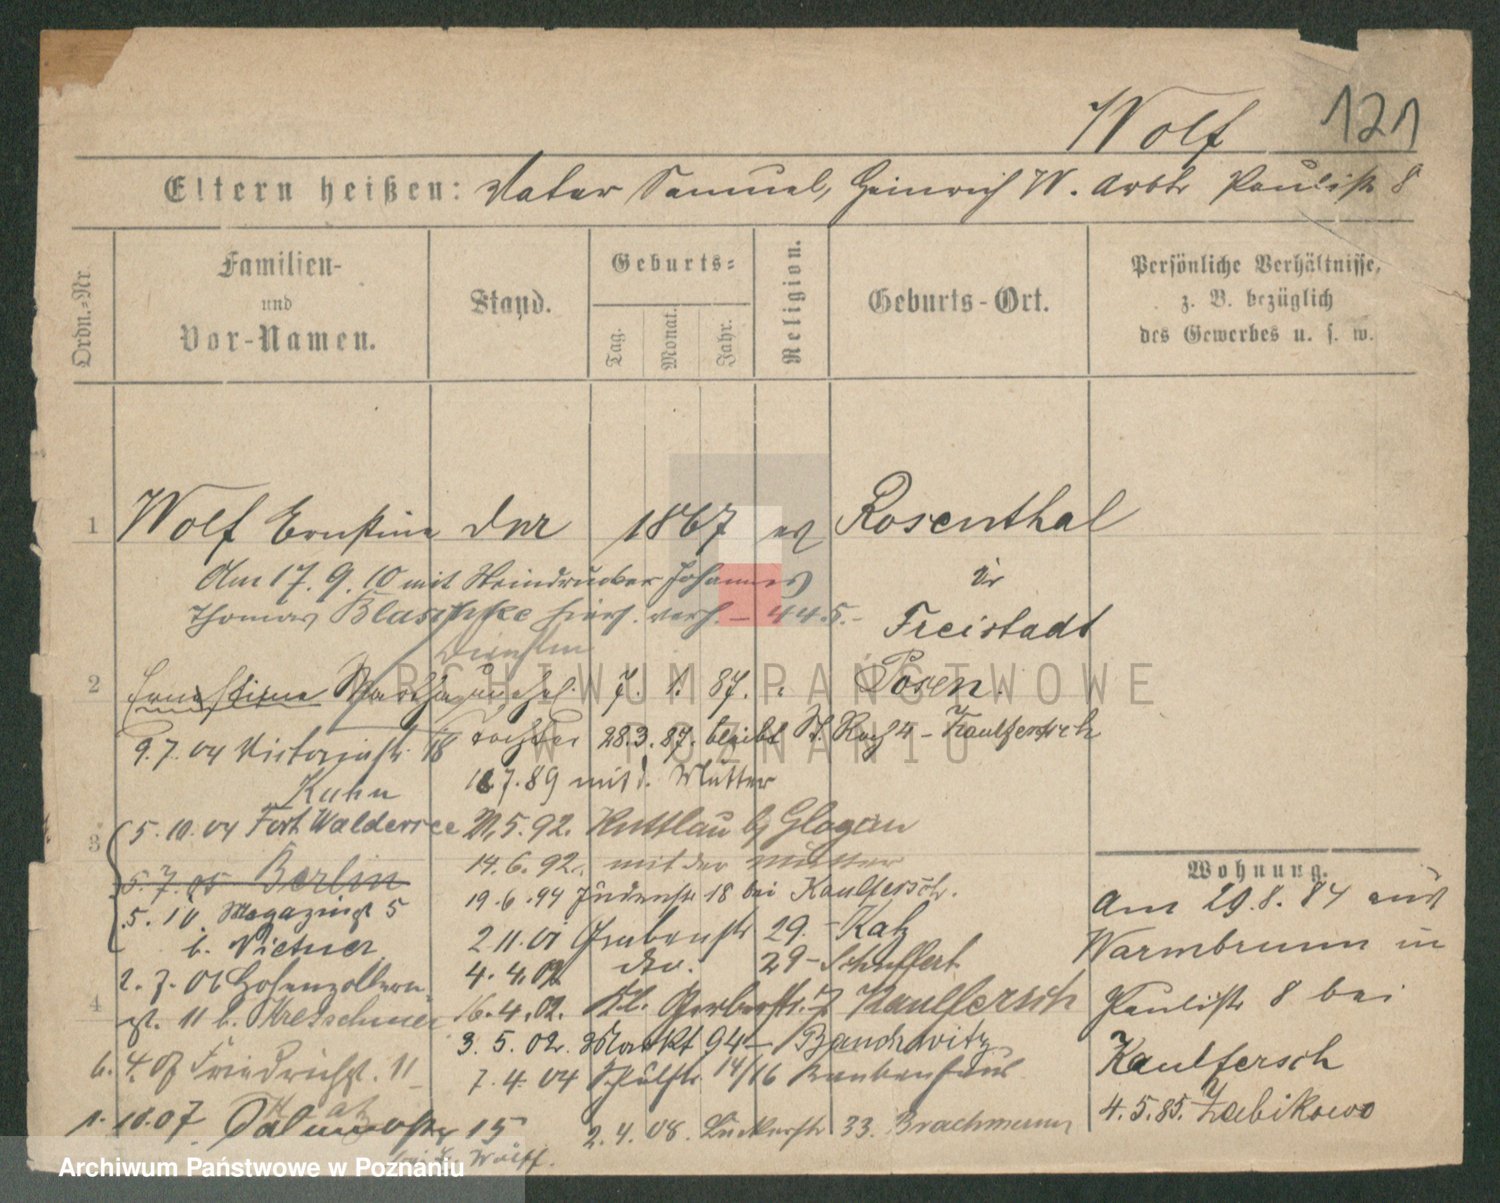 Wolf 121
Eltern heißen: Vater Samuel, Heinrich W. Arbtr Paulist 8
Ordn.-Nr.
Familien-
und
Vor-Namen.
Stand.
Geburts-
Tag.
Monat.
Jahr.
Religion.
Geburts-Ort.
Persönliche Verhältnisse,
z. B. bezüglich
des Gewerbes u. s. w.
1 Wolf Ernstine 1867 ev Rosenthal
Am 17. 9. 10 mit Steindrucker Johannes
Thomas Blaschke hier verh. – 445.-
Kr
Freistadt
2 Ernestine Martha unehel. 7. 1. 87. Posen.
9.7.04 Victoriastr. 18 Tochter 28.3.87. bleibt St. Roch 4 – Kaulfersch
Kuhn
7.89 mit d. Mutter
3
5. 10. 04 Fort Waldersee 21.5.92. Kuttlau b/ Glogau
14.6.92. mit der Mutter
5.7.05 Berlin
19.6.94 Judenstr 18 bei Kaulfersch.
5. 10. Magazinst 5
b. Pietner
2.11.01 Grabenstr 29. – Katz
4.4.02 do. 29 – Schuffert
2. 7. 06 Hohenzollern-
4
st. 11 b. Kretschmer 16.4.02. Kl. Gerberstr. 7 Kaulfersch
3. 5. 02. Markt 94 – Bandrowitz
6. 4. 07 Friedrichst. 11
7. 4. 04 Schulstr. 14/16 Krankenhaus
1. 10. 07 15
2. 4. 08. 33. Brachmann
Wolff.
Wohnung.
Am 29.8.84 aus
Warmbrunn in
Paulistr 8 bei
Kaulfersch
4.5.85. Zabikowo
ARCHIWUM PAŃSTWOWE
W POZNANIU
Archiwum Państwowe w Poznaniu